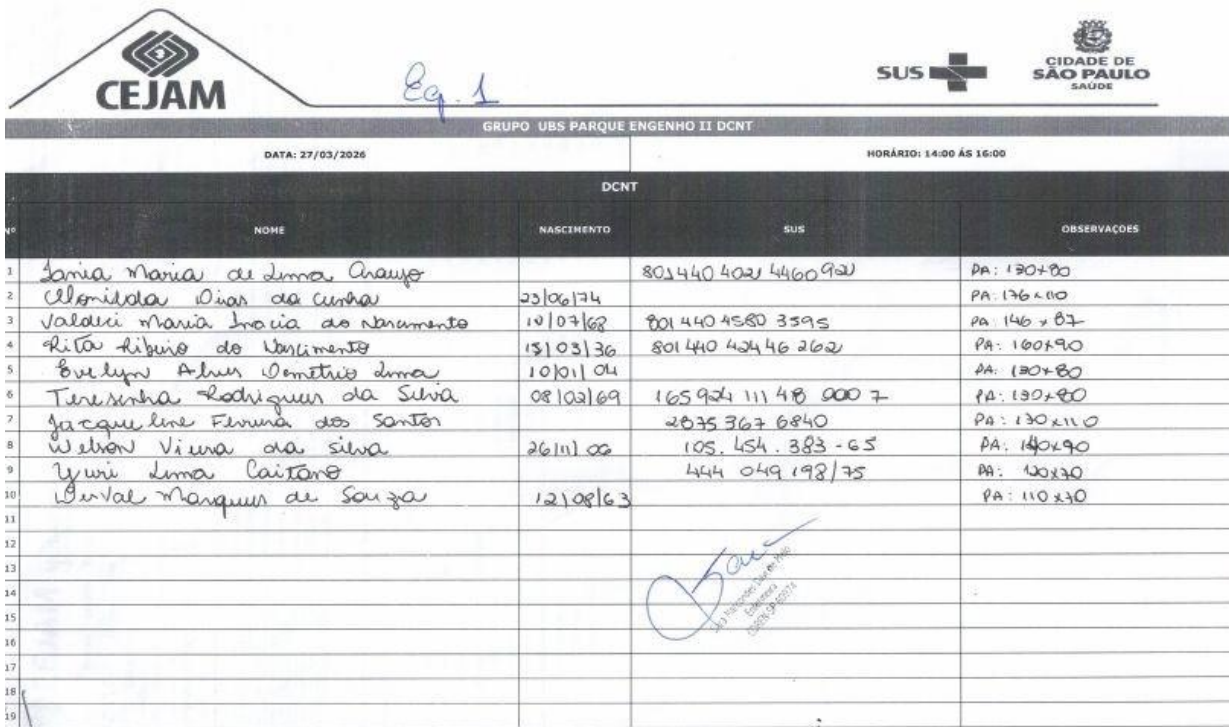 CEJAM
Eq. 1
SUS
CIDADE DE
SÃO PAULO
SAÚDE
GRUPO UBS PARQUE ENGENHO II DCNT
DATA: 27/03/2026 HORÁRIO: 14:00 ÁS 16:00
DCNT
Nº NOME NASCIMENTO SUS OBSERVAÇOES
1 Tania Maria de Lima Araujo 801440402 PA: 130x80
2 Dias da cunha 23/06/74 PA: 176x110
3 Valdeci Maria Inacia do Nascimento 10/07/68 801 440 4580 3595 PA: 146 x 87
4 Rita Ribeiro do Nascimento 15/03/36 801440 42446 2602 PA: 160x90
5 Evelyn Alves Demetrio Lima 10/01/04 PA: 130x80
6 Teresinha Rodrigues da Silva 08/02/69 165924 111 48 000 7 PA: 130x80
7 Jacqueline Ferreira dos Santos 2875 367 6840 PA: 130x110
8 Welson Vieira da silva 26/11/06 105.454.383-65 PA: 140x90
9 Yuri Lima Caitano 444 049 198/75 PA: 120x70
10 Marques de Souza 12/08/63 PA: 110x70
11
12
13
14
15
16
17
18
19
Enfermeira